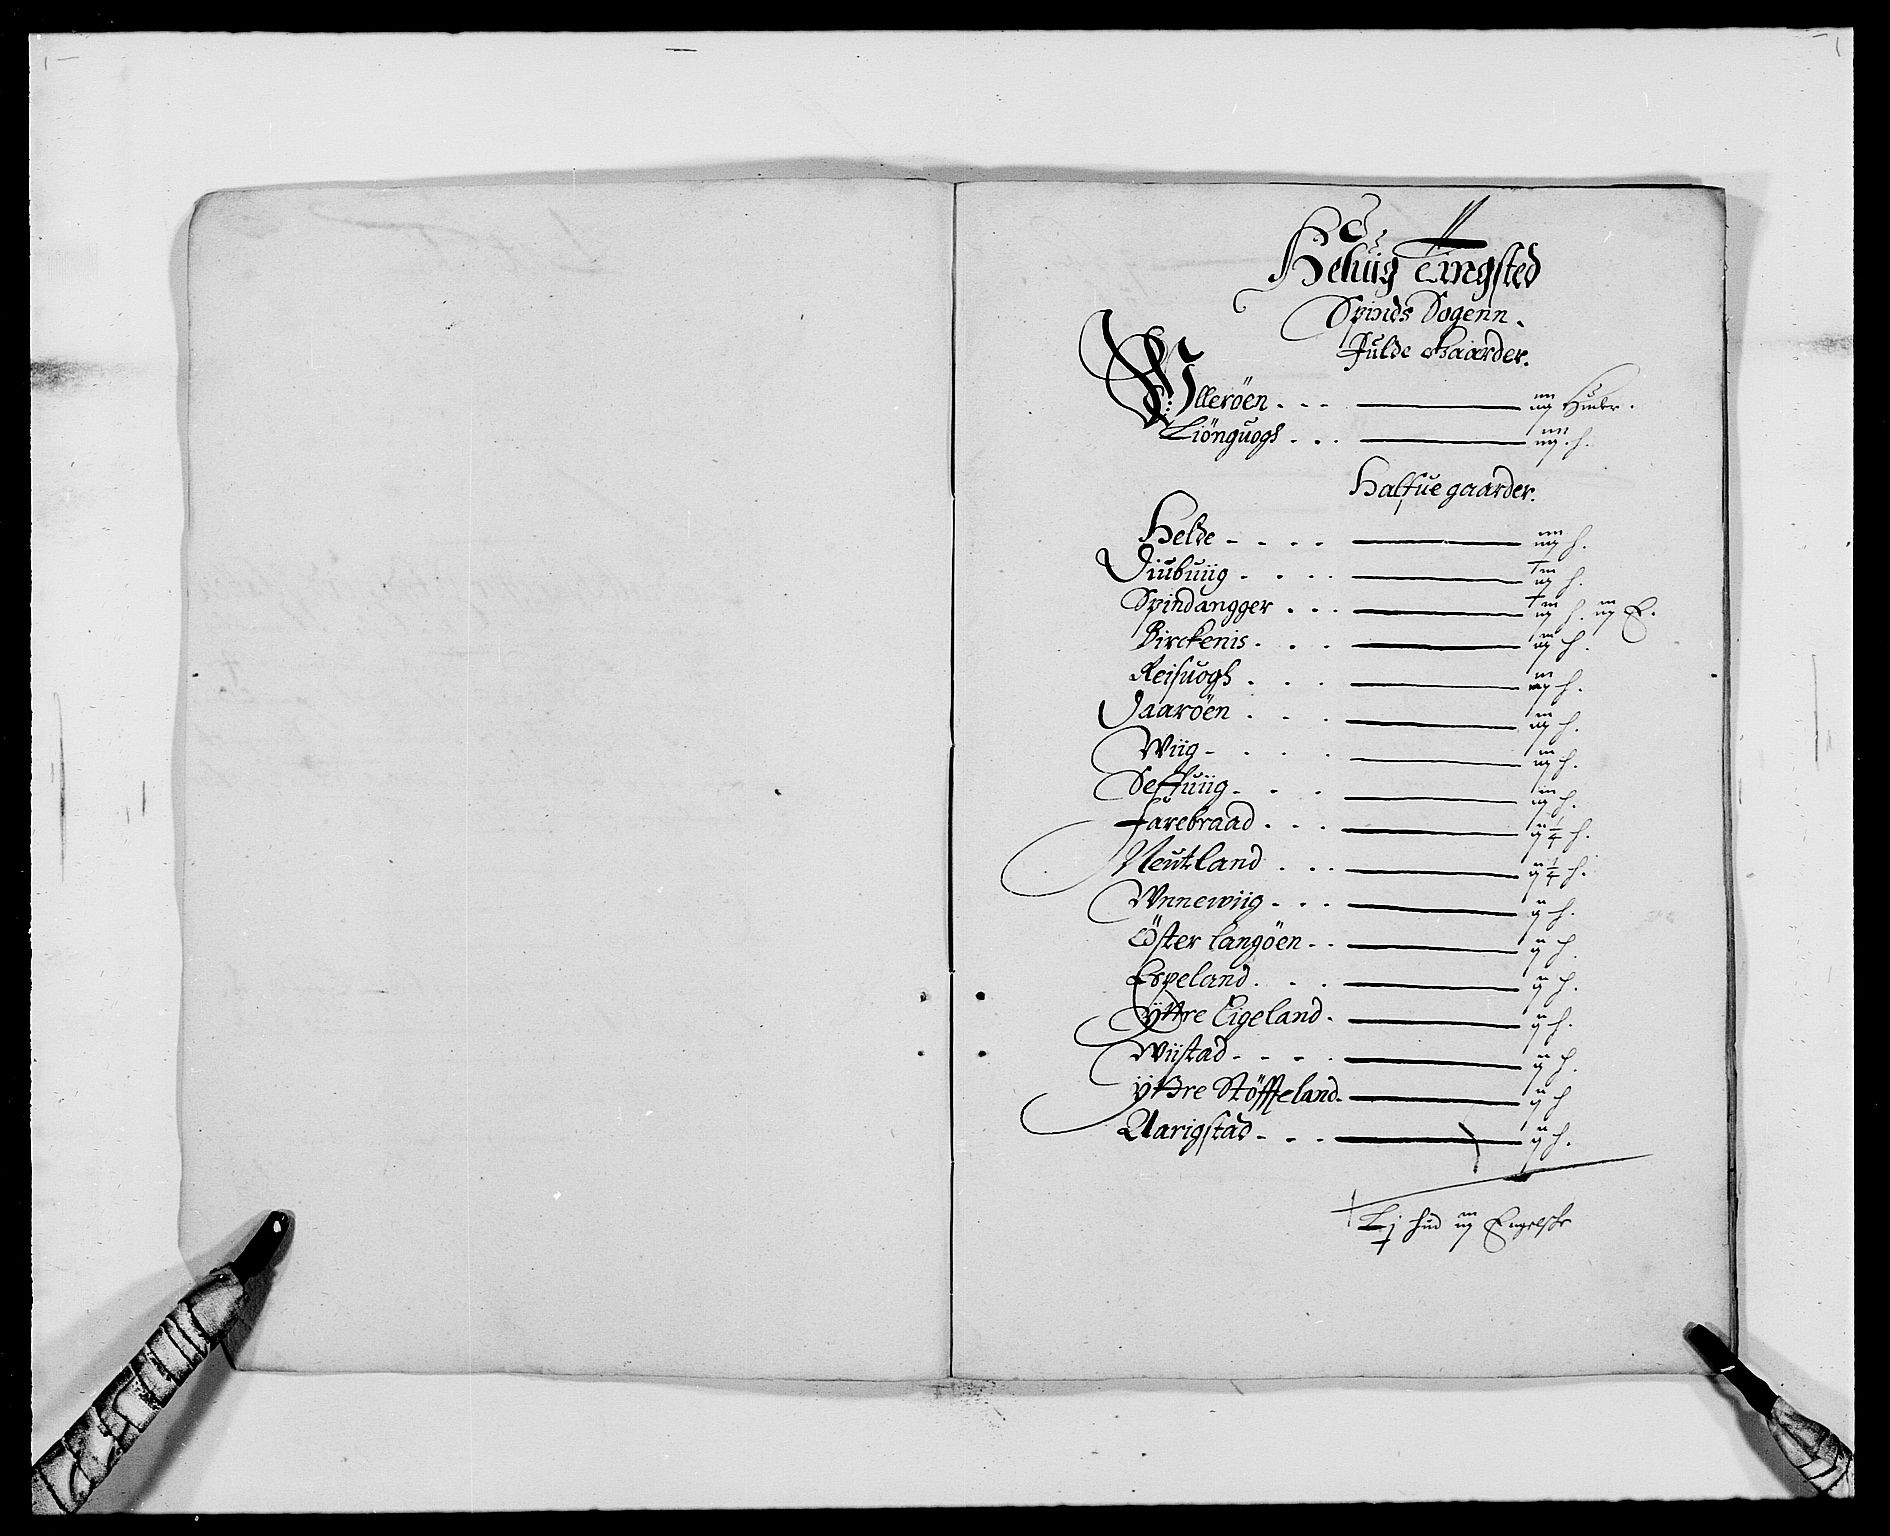 Heluig Tingsted
Spinds Sogenn.
Fulde Gaarder.
Ulleröen . . . iiij Huder.
Liönguogh . . . iiij h.
Halfue gaarder.
Helde - . . . iiij h.
Jiubuiig . . . . iij h.
Spindangger . . . iij h. iij E.
Birckenis . . . iij h.
Reisuogh . . . iij h.
Jaaröen . . . iij h.
Wiig - . . . iij h.
Seffuiig . . . iij h.
Farebraad . . . ij 1/4 h.
Neutland . . . ij 1/4 h.
Wnnewiig . . . ij h.
Öster langöen . . ij h.
Espeland . . . ij h.
ÿttre Eigeland . ij h.
Wiistad - . . . ij h.
ÿttre Stöffeland . ij h
Aarigstad - . . . ij h.
Lj hud iij Engelske